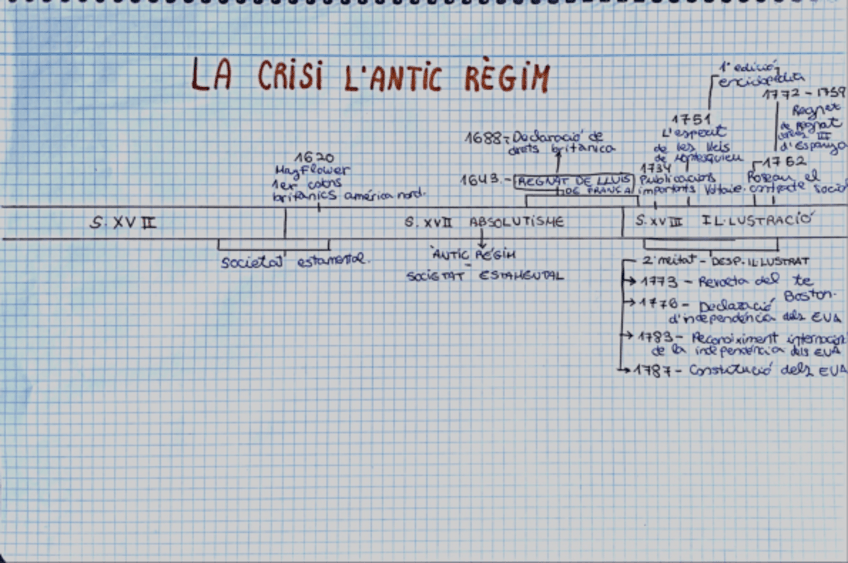 LA CRISI L'ANTIC RÈGIM
1ª edició
enciclopèdia
1772 - 1759
Regnet
de Regnat
III
d'Espanya
1751
L'esperit
de les lleis
de Montesquieu
1688 - Declaració de
drets britànica
1620
MayFlower
1er colons
britànics amèrica nord.
1643.- REGNAT DE LLUIS
DE FRANÇA
1734
Publicacions
importants Voltaire.
1762
el
contracte social
S. XVII
S. XVII ABSOLUTISME
S. XVIII IL·LUSTRACIÓ
Societat estamental.
ANTIC RÈGIM
SOCIETAT ESTAMENTAL
2ª meitat - DESP. IL·LUSTRAT
1773 - Revolta del te
Boston.
1776 - Declaració
d'independència dels EUA
1783 - Reconoiximent internacio
de la independència dels EUA
1787 - Constitució dels EUA